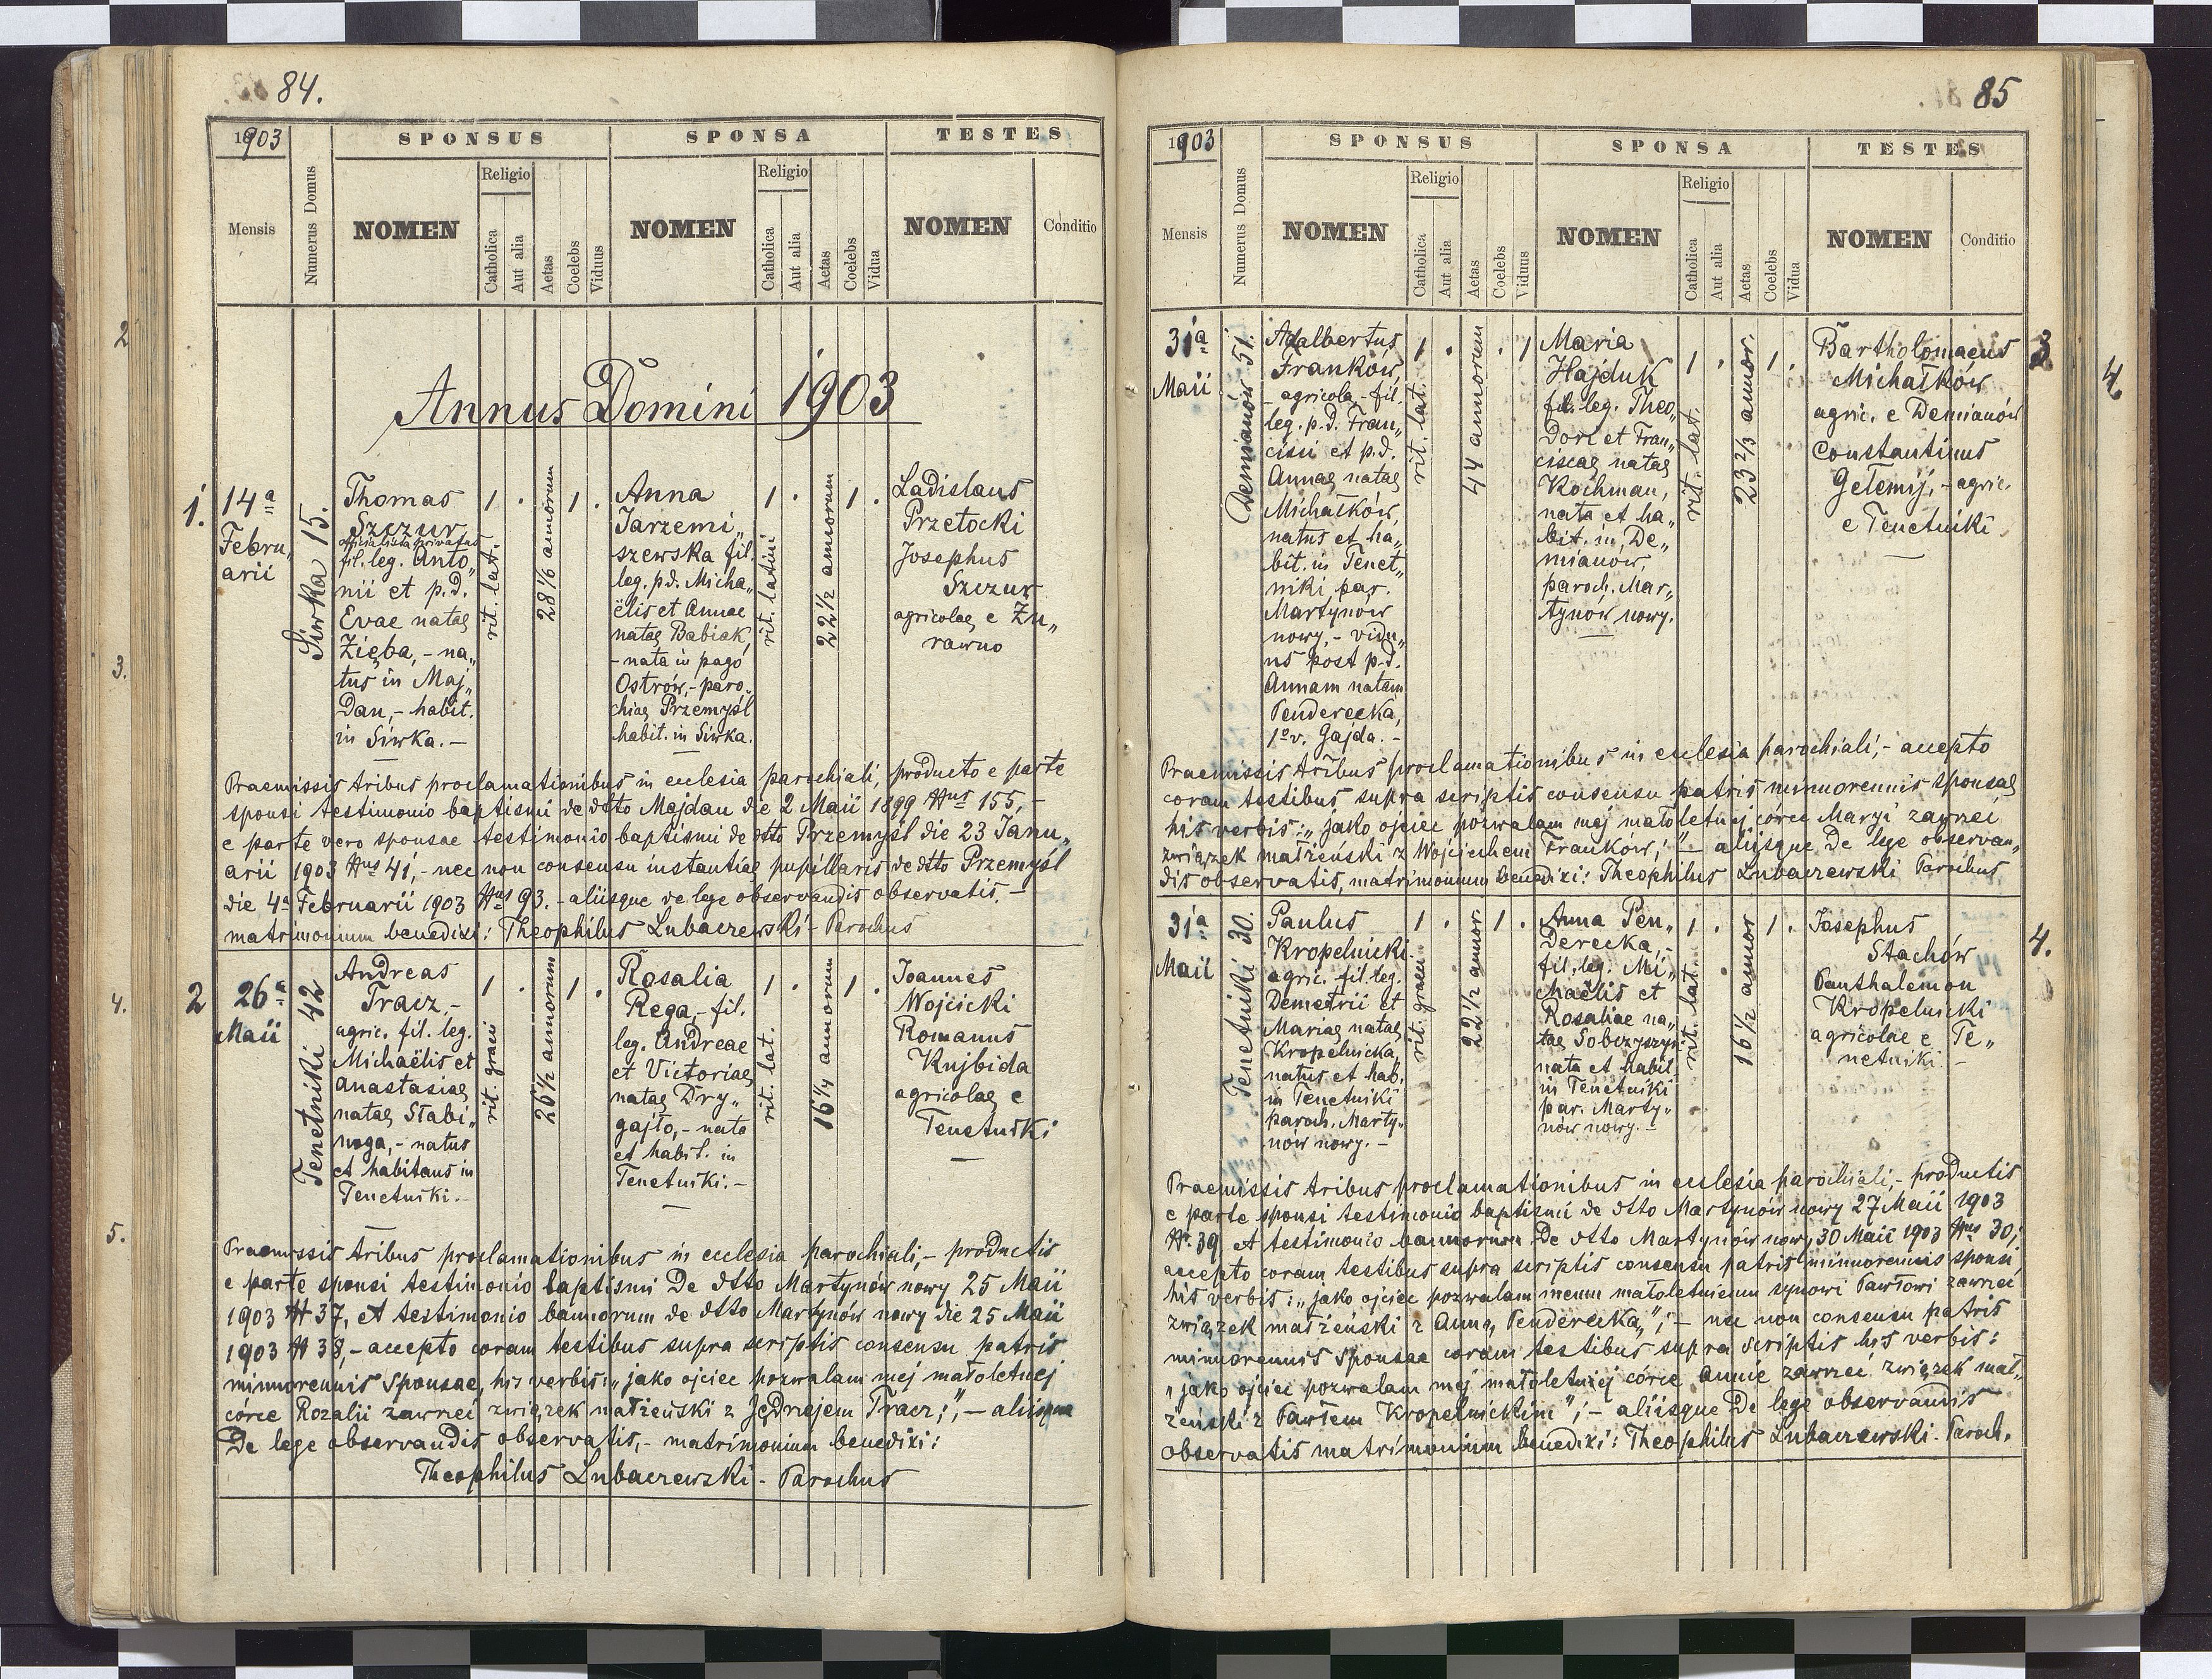 84.
1903
SPONSUS
SPONSA
TESTES
Mensis
Numerus Domus
NOMEN
Religio
Catholica
Aut alia
Aetas
Coelebs
Viduus
NOMEN
Religio
Catholica
Aut alia
Aetas
Coelebs
Vidua
NOMEN
Conditio
Annus Domini 1903
1.
14a
Febru„
arii
Siwka 15.
Thomas
Szczur
officialista privatus
fil. leg. Anto„
nii et p.d.
Evae natae
Zięba, - na„
tus in Maj„
dan, - habit.
in Siwka. -
1 .
rit. lat.
28 1/6 annorum
1 .
Anna
Jarzemi„
szewska fil.
leg. p.d. Micha„
ëlis et Annae
natae Babiak,
- nata in pago
Ostrów, - paro„
chiae Przemyśl
habit. in Siwka.
1 .
rit. latini
22 1/2 annorum
1 .
Ladislaus
Przetocki
Josephus
Szczur
agricolae e Żu„
rawno
Praemissis tribus proclamationibus in ecclesia parochiali, producto e parte
sponsi testimonio baptismi de dtto Majdan die 2 Maii 1899 Nus 155, -
e parte vero sponsae testimonio baptismi de dtto Przemyśl die 23 Janu„
arii 1903 Nus 41, - nec non consensu instantiae pupillaris de dtto Przemyśl
die 4a Februarii 1903 Nus 93. - aliisque de lege observandis observatis. -
matrimonium benedixi: Theophilus Lubaczewski - Parochus
2
26a
Maii
Tenetniki 42
Andreas
Tracz, -
agric. fil. leg.
Michaëlis et
Anastasiae
natae Stabi„
noga, - natus
et habitans in
Tenetniki. -
1 .
rit. graeci
26 1/2 annorum
1 .
Rosalia
Rega, - fil.
leg. Andreae
et Victoriae
natae Dry„
gajło, - nata
et habit. in
Tenetniki. -
1 .
rit. lat.
16 1/4 annorum
1 .
Joannes
Wojcicki
Romanus
Kujbida
agricolae e
Tenetniki
Praemissis tribus proclamationibus in ecclesia parochiali, - productis
e parte sponsi testimonio baptismi de dtto Martynów nowy 25 Maii
1903 N 37, et testimonio bannorum de dtto Martynów nowy die 25 Maii
1903 N 38, - accepto coram testibus supra scriptis consensu patris
minnorennis sponsae, his verbis: „jako ojciec pozwalam mej małoletnej
córce Rozalii zawrzeć związek małżeński z Jędrzejem Tracz;", - aliisque
de lege observandis observatis, - matrimonium benedixi:
Theophilus Lubaczewski - Parochus
85
1903
SPONSUS
SPONSA
TESTES
Mensis
Numerus Domus
NOMEN
Religio
Catholica
Aut alia
Aetas
Coelebs
Viduus
NOMEN
Religio
Catholica
Aut alia
Aetas
Coelebs
Vidua
NOMEN
Conditio
31a
Maii
Demianów 51.
Adalbertus
Franków,
agricola, - fil.
leg. p.d. Fran„
cisci et p.d.
Annae natae
Michałków,
natus et ha„
bit. in Tenet„
niki par.
Martynów
nowy, - vidu„
us post p.d.
Annam natam
Penderecka,
1o v. Gajda. -
1 .
rit. lat.
44 annorum
. 1
Maria
Hajduk
fil. leg. Theo„
dori et Fran„
ciscae natae
Kochman,
nata et ha„
bit. in De„
mianów,
paroch. Mar„
tynów nowy.
1 .
rit. lat.
23 2/3 annor.
1 .
Bartholomaeus
Michałków
agric. e Demianów
Constantinus
Gełemij, - agric.
e Tenetniki
3
Praemissis tribus proclamationibus in ecclesia parochiali, - accepto
coram testibus supra scriptis consensu patris minnorennis sponsae
his verbis: „jako ojciec pozwalam mej małoletniej córce Maryi zawrzeć
związek małżeński z Wojciechem Franków;" - aliisque de lege observan„
dis observatis, matrimonium benedixi: Theophilus Lubaczewski Parochus
31a
Maii
Tenetniki 30.
Paulus
Kropelnicki
agric. fil. leg.
Demetrii et
Mariae natae
Kropelnicka,
natus et hab.
in Tenetniki
paroch. Marty„
nów nowy. -
1 .
rit. graeci
22 1/2 annor.
1 .
Anna Pen„
derecka, -
fil. leg. Mi„
chaëlis et
Rosaliae na„
tae Sobczyszyn
nata et habit.
in Tenetniki
par. Marty„
nów nowy. -
1 .
rit. lat.
16 1/2 annor
1 .
Josephus
Stachów
Panthalemon
Kropelnicki
agricolae e Te„
netniki. -
4.
Praemissis tribus proclamationibus in ecclesia parochiali, - productis
e parte sponsi testimonio baptismi de dtto Martynów nowy 27 Maii 1903
N. 39 et testimonio bannorum de dtto Martynów nowy 30 Maii 1903 Nus 30;
accepto coram testibus supra scriptis consensu patris minnorennis sponsi
his verbis: „jako ojciec pozwalam memu małoletniemu synowi Pawłowi zawrzeć
związek małżeński z Anną Penderecką"; - nec non consensu patris
minnorennis sponsae coram testibus supra scriptis his verbis:
„jako ojciec pozwalam mej małoletniej córce Annie zawrzeć związek mał„
żeński z Pawłem Kropelnickim"; - aliisque de lege observandis
observatis matrimonium benedixi: Theophilus Lubaczewski. Paroch.
2
3.
4.
5.
4.